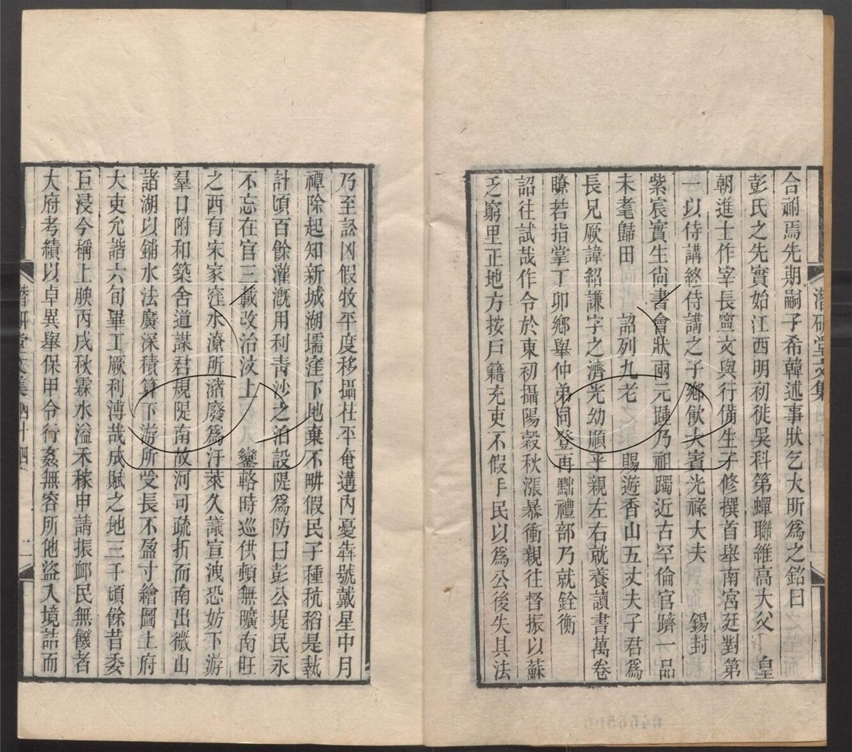 合祔焉先期嗣子希韓述事狀乞大昕爲之銘曰
彭氏之先實始江西明初徙吳科第蟬聯維高大父 皇
朝進士作宰長寧文與行備生子修撰首舉南宮廷對第
一以侍講終侍講之子鄉飲大賓光祿大夫 錫封
紫宸實生尚書會狀兩元踵乃祖躅近古罕倫官躋一品
未耄歸田 詔列九老 賜遊香山五丈夫子君爲
長兄厥諱紹謙字之濟光幼順乎親左右就養讀書萬卷
瞭若指掌丁卯鄉舉仲弟同登再黜禮部乃就銓衡
詔往試哉作令於東初攝陽穀秋漲暴衝親往督振以蘇
乏窮里正地方按戶籍充吏不假手民以爲公後失其法
潛研堂文集
乃至訟凶假牧平度移攝茌平奄遘內憂犇號戴星中月
禫除起知新城湖壖窪下地棄不畊假民子種秔稻是蓺
計頃百餘灌漑用利靑沙之泊設隄爲防曰彭公堤民永
不忘在官三載改治汶上 鑾輅時巡供頓無曠南旺
之西有宋家窪水潦所瀦廢爲汙萊久議宣洩恐妨下游
羣口附和築舍道謀君規隄南故河可疏折而南出微山
諸湖以鋪水法廣深積算下游所受長不盈寸繪圖上府
大吏允諧六旬畢工厥利溥哉成賦之地三千頃餘昔委
巨浸今稱上腴丙戌秋霖水溢禾稼申請振邮民無餒者
大府考績以卓異舉保甲令行姦無容所他盜入境詰而
潛研堂文集 四十四 二